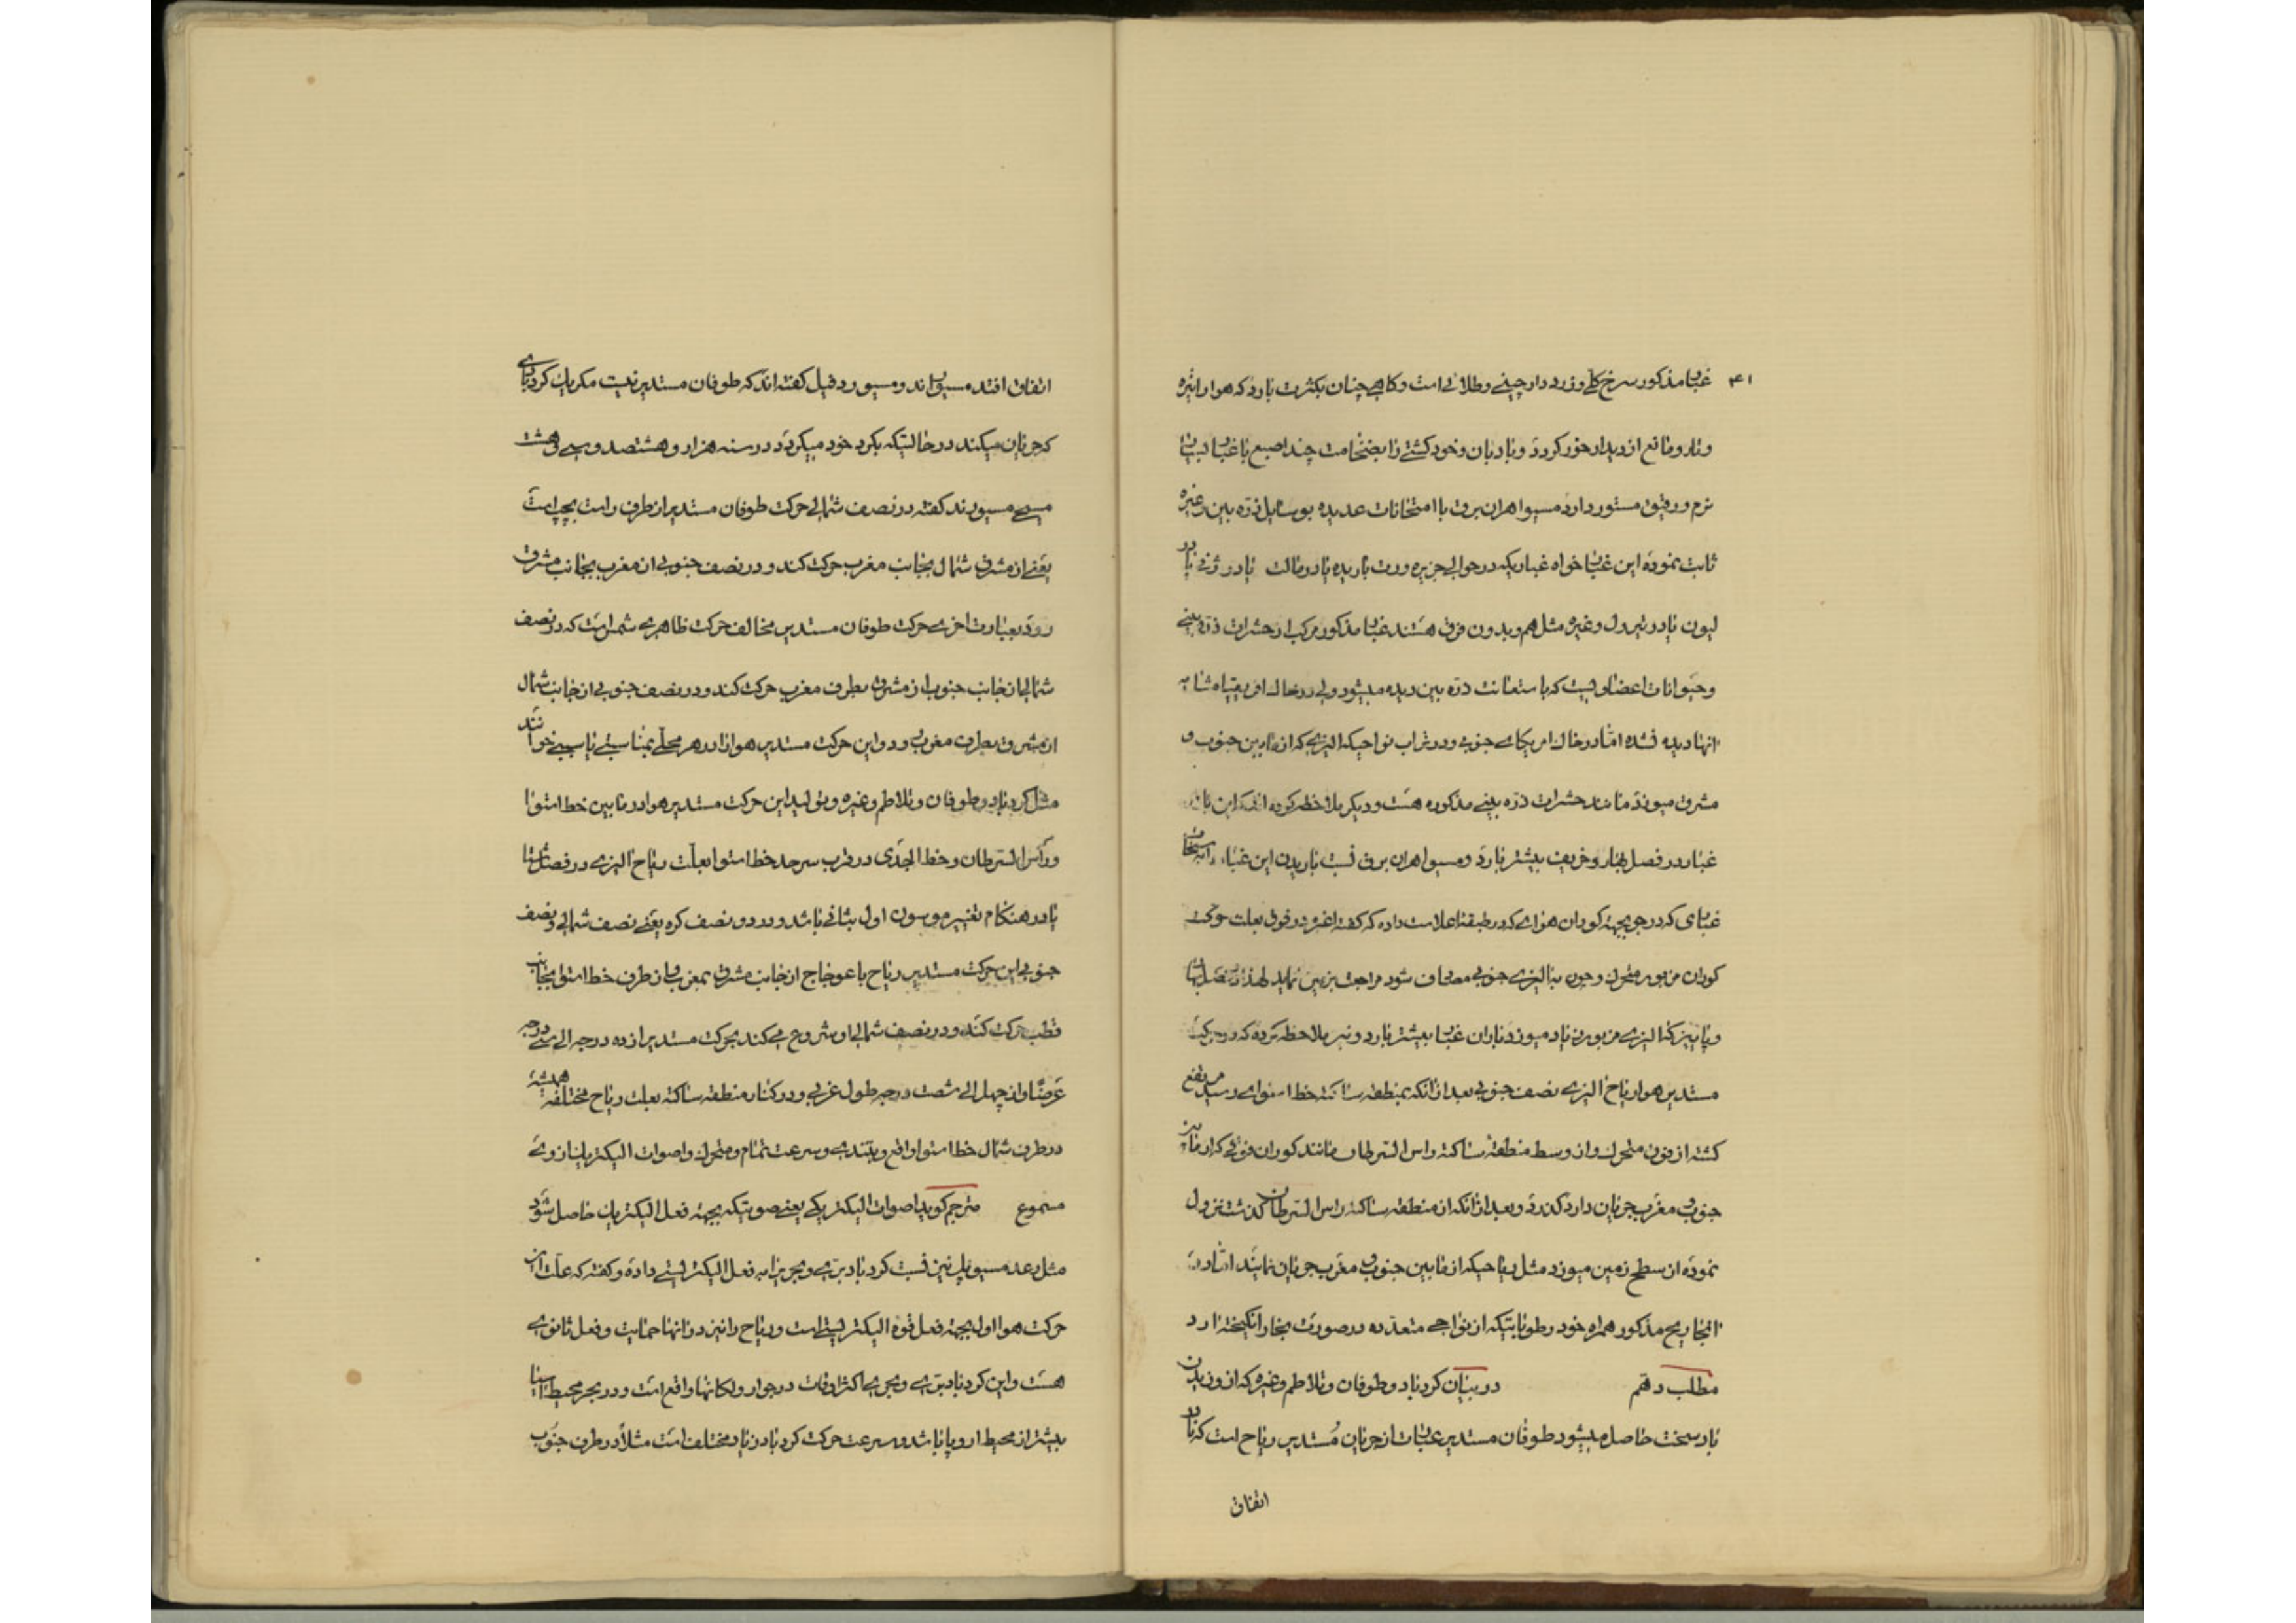 ۴۱
غبار مذکور سرخ کلی و زرد دارچینی و طلائی است و کاهی چنان بکثرت بارد که هوا را تیره
و تار و مانع از دیدار خور کردد و بادبان و خود کشتی را بضخامت چند اصبع با غبار بسیار
نرم و رقیق مستور دارد مسیو اهران برق با امتحانات عدیده بوسایل ذره بین و غیره
ثابت نموده این غبار خواه غباریکه در حوالی جزیره ورت باریده یا در مالت یا در ژنی یا در
لیون یا در تیرول و غیره مثل هم و بدون فرق هستند غبار مذکور مرکب از حشرات ذره بینی
و حیوانات اعضاویست که باستعانت ذره بین دیده میشود ولی در خاک افریقیاه مشابه
انها دیده نشده اما در خاک امریکای جنوبی و در تراب نواحیکه الیزی که از مابین جنوب و
مشرق میوزد مانند حشرات ذره بینی مذکوره هست و دیکر ملاحظه کرده اند که این باران
غبار در فصل بهار و خریف بیشتر بارد و مسیو اهران برق نسبت باریدن این غبار
غباری که در جو بجهة کوران هوای که در طبقه اعلا مت داده که کفته اغبره در فوق بعلت حرکت
کوران مزبور متحرک و چون به الیزی جنوبی مصادف شود مراجعت بزمین نماید لهذا در فصل بهار
و پاییز که الیزی مزبور زیاد میوزد باران غبار بیشتر بارد و نیز ملاحظه کرده که در حرکت
مستدیر هوا ریاح الیزی نصف جنوبی بعد از انکه بمنطقه ساکته خط استوای رسید مرتفع
کشته از فوق متحرک و از وسط منطقه ساکته راس السرطان مانند کوران فوقی که از مابین
جنوب و مغرب جریان دارد کذرد و بعد از انکه از منطقه ساکته راس السرطان کذشت نزول
نموده از سطح زمین میوزد مثل ریاحیکه از مابین جنوب و مغرب جریان نمایند اما در
انجا ریح مذکور همراه خود رطوباتیکه از نواحی متعدده در صورت بخار انکیخته ارد
مطلب دهم در بیان کردباد و طوفان و تلاطم و غیره که از وزیدن
باد سخت حاصل میشود طوفان مستدیر عبارت از جریان مستدیر ریاح است که باد
اتفاق
اتفاق افتد مسیو براند و مسیو ردفیل کفته اند که طوفان مستدیر نیست مکر یک کردبادی
که جریان میکند در حالتیکه بکرد خود میکردد در سنه هزار و هشتصد و سی و هشت
مسیحی مسیو رند کفته در نصف شمالی حرکت طوفان مستدیر از طرف راست بچپ است
یعنی از مشرق شمال بجانب مغرب حرکت کند و در نصف جنوبی از مغرب بجانب مشرق
رود بعبارت اخری حرکت طوفان مستدیر مخالف حرکت ظاهری شمس است که در نصف
شمالی از جانب جنوب از مشرق بطرف مغرب حرکت کند و در نصف جنوبی از جانب شمال
از مشرق بطرف مغرب رود و این حرکت مستدیر هوا را در هر محلی بمناسبتی باسمی خوانند
مثل کردباد و طوفان و تلاطم و غیره و تولید این حرکت مستدیر هوا در مابین خط استوا
و راس السرطان و خط الجدی در قرب سرحد خط استوا بعلت ریاح الیزی در فصل شتا
یا در هنکام تغییر موسون اول بثانی باشد و در دو نصف کره یعنی نصف شمالی و نصف
جنوبی این حرکت مستدیر ریاح باعوجاج از جانب مشرق بمغرب و از طرف خط استوا بجانب
قطب حرکت کند و در نصف شمالی او شروع می کند بحرکت مستدیر از ده درجه الی سی درجه
عرضا و از چهل الی شصت درجه طول غربی و در کنار منطقه ساکته بعلت ریاح مختلفه همیشه
در طرف شمال خط استوا واقع و بتندی و سرعت تمام و متحرک و اصوات الیکتریک از وی
مسموع مترجم کوید اصوات الیکتریکی یعنی صوتیکه بجهة فعل الیکتریک حاصل شود
مثل رعد مسیو پلنین نسبت کردباد بری و بحری را به فعل الیکتریستی داده و کفته که علت این
حرکت هوا اول بجهة فعل قوه الیکتریستی است و ریاح را نیز در انها حمایت و فعل ثانوی
هست و این کردباد بری و بحری اکثر اوقات در جوار ولکانها واقع است و در بحر محیط اسیا
بیشتر از محیط اروپا باشد و سرعت حرکت کردباد زیاد مختلف است مثلا در طرف جنوب